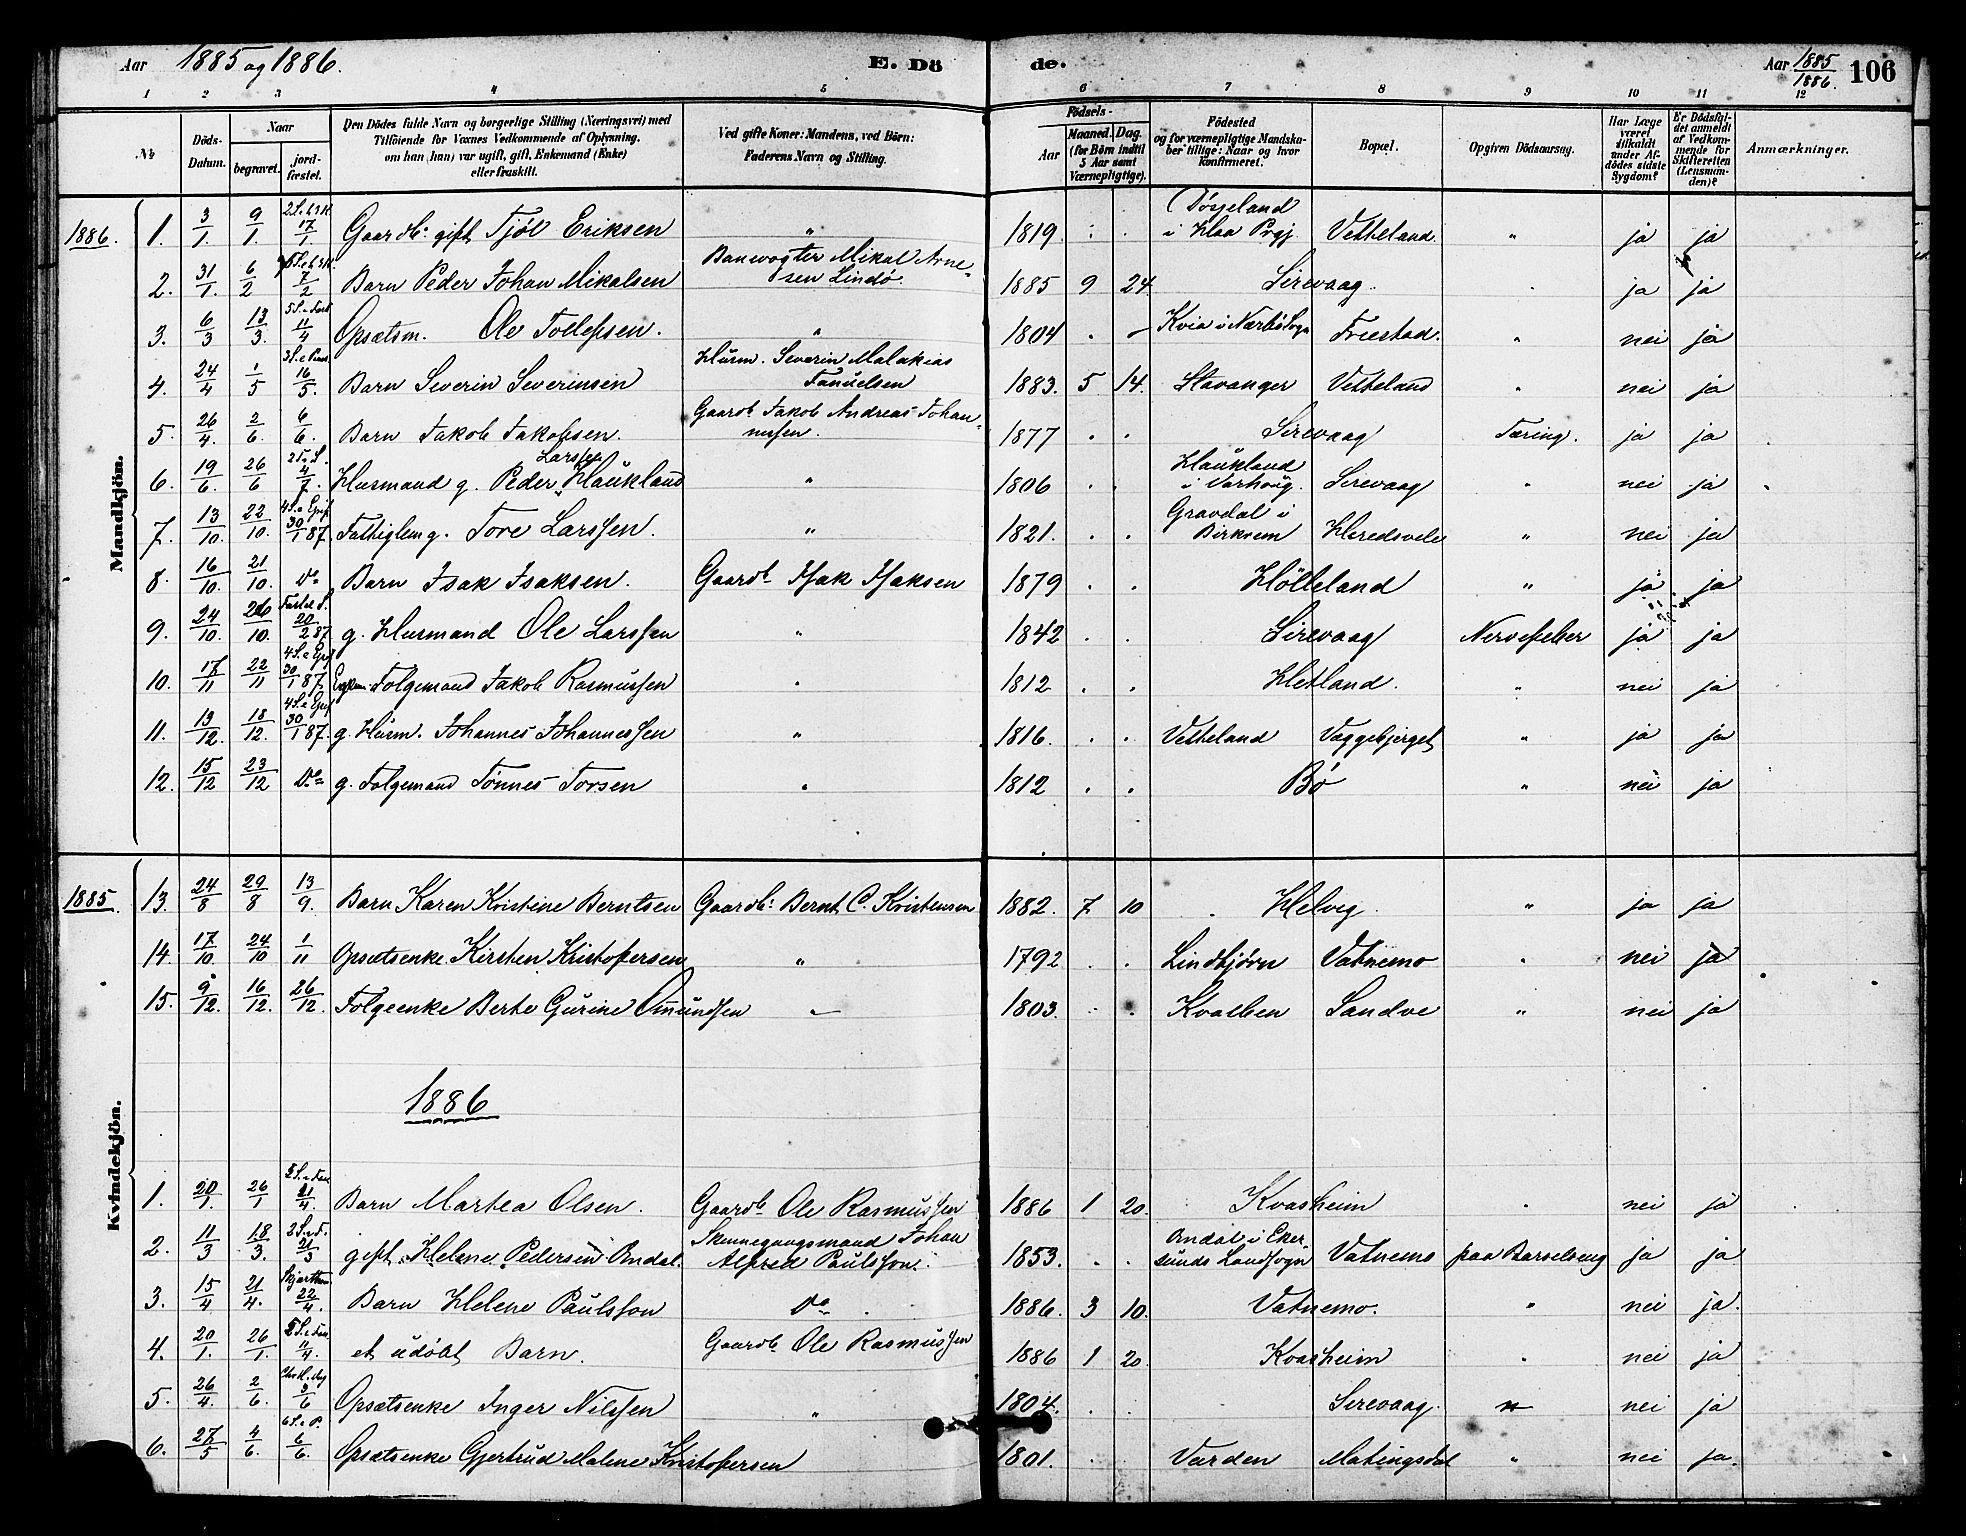 Aar 1885 og 1886. E. Dö de. Aar 1885/1886. 106
1 2 3 4 5 6 7 8 9 10 11 12
No. Döds-Datum. Naar begravet. jordfæstet. Den Dödes fulde Navn og borgerlige Stilling (Næringsvei) med Tilföiende for Voxnes Vedkommende af Oplysning, om han (hun) var ugift, gift, Enkemand (Enke) eller fraskilt. Ved gifte Koner: Mandens, ved Börn: Faderens Navn og Stilling. Födsels- Aar Maaned. Dag. (for Börn indtil 5 Aar samt Værnepligtige). Födested og for værnepligtige Mandskaber tillige: Naar og hvor konfirmeret. Bopæl. Opgiven Dödsaarsag. Har Læge været tilkaldt under Afdödes sidste Sygdom? Er Dödsfaldet anmeldt af Vedkommende for Skifteretten (Lensmanden)? Anmærkninger.
Mandkjön.
1886. 1. 3/1 9/1 17/1 Gaardb. gift Tjøl Eriksen " 1819 . . i Klaa Prgj. Vetteland " ja ja
2. 31/1. 6/2 7/2 Barn Peder Johan Mikalsen Banevogter Mikal Arnesen Lindø. 1885 9 24 Sirevaag. ja ja
3. 6/3 13/3. 11/4 Opsætsm. Ole Tollefsen. " 1804 . - Kvia i Nærbö Sogn Friestad. " nei ja
4. 24/4 1/5 16/5. Barn Severin Severinsen Husm. Severin Malakias Tanuelsen 1883. 5 14. Stavanger Vetteland " nei ja
5. 26/4. 2/6. 6/6. Barn Jakob Jakobsen. Gaardb. Jakob Andreas Johannessen. 1877 . . Sirevaag Tæring. ja ja
6. 19/6. 26/6 4/7. Husmand g. Peder Larssen Haukland " 1806 . . Haukland i Varhoug. Sirevaag " nei ja
7. 13/10. 22/10. 30/1 87. Fattiglem g. Tore Larssen. " 1821. . . Gravdal i Birkrem Heredsvele " nei ja
8. 16/10. 21/10. Do Barn Isak Isaksen. Gaardb. Isak Isaksen 1879 . . Hölleland " ja ja
9. 24/10. 26/10. 20/2 87. g. Husmand Ole Larssen " 1842 . . Sirevaag Nervefeber ja ja
10. 17/11 22/11 30/1 87. Folgemand Jakob Rasmussen " 1812 . . Hetland. " nei ja
11. 13/12. 18/12. 30/1 87. g. Husm. Johannes Johannessen " 1816. . . Vetteland Vaggebjerget " ja ja
12. 15/12 23/12 Do g. Folgemand Tönnes Torsen " 1812 . . Bö " nei ja
Kvindekjön.
1885. 13. 24/8 29/8 13/9. Barn Karen Kristine Berntsen Gaardb. Bernt C. Kristensen 1882. 7 10 Helvig. " ja ja
14. 17/10. 24/10 1/11 Opsætsenke Kirsten Kristofersen " 1792 . . Lindtjörn Vatnemo " nei ja
15. 9/12. 16/12. 26/12. Folgeenke Berte Gurine Omundsen " 1803. . . Kvalben Sandve " nei ja
1886
1. 20/1. 26/1 21/4. Barn Martea Olsen. Gaardb. Ole Rasmussen 1886 1 20. Kvasheim " nei ja
2. 11/3 18/3. 21/3 gift Helene Pedersen Omdal. Johan Alfred Paulsson. 1853. . . Omdal i Ekersunds Landsogn Vatnemo paa Barselseng ja ja
3. 15/4 21/4. 22/4. Barn Helene Paulsson Do 1886. 3 10. Vatnemo. " nei ja.
4. 20/1. 26/1. 11/4. et udöbt Barn. Gaardb. Ole Rasmussen 1886 1 20. Kvasheim " nei ja
5. 26/4. 2/6. 3/6 Opsætsenke Inger Nilssen " 1804. . . Sirevaag. " nei ja
6. 27/5 4/6. 6/6. Opsætsenke Gjertrud Malene Kristofersen 1801. . . Varden Matingsdal " nei ja.